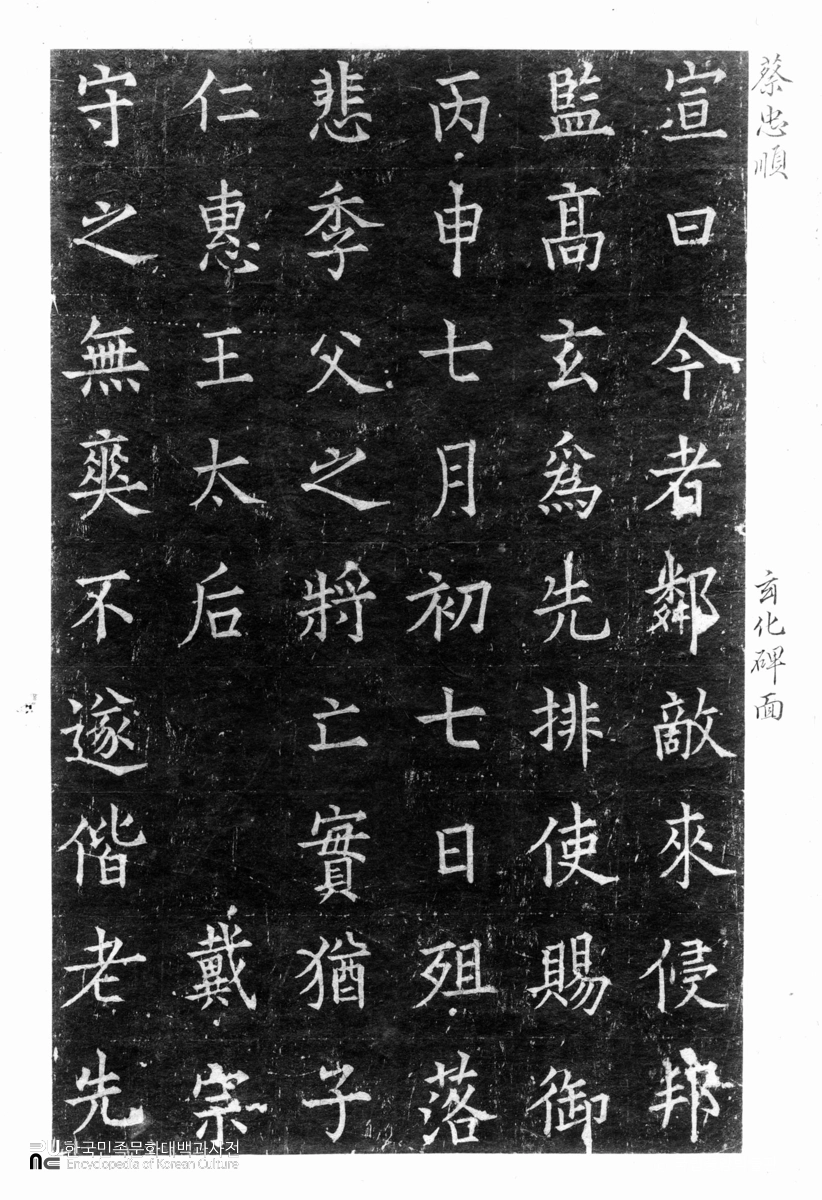 蔡忠順
玄化碑面
宣曰今者鄰敵來侵邦
監高玄為先排使賜御
丙申七月初七日殂落
悲季父之將亡實猶子
仁惠王太后 戴宗
守之無爽不遂偕老先
한국민족문화대백과사전
Encyclopedia of Korean Culture